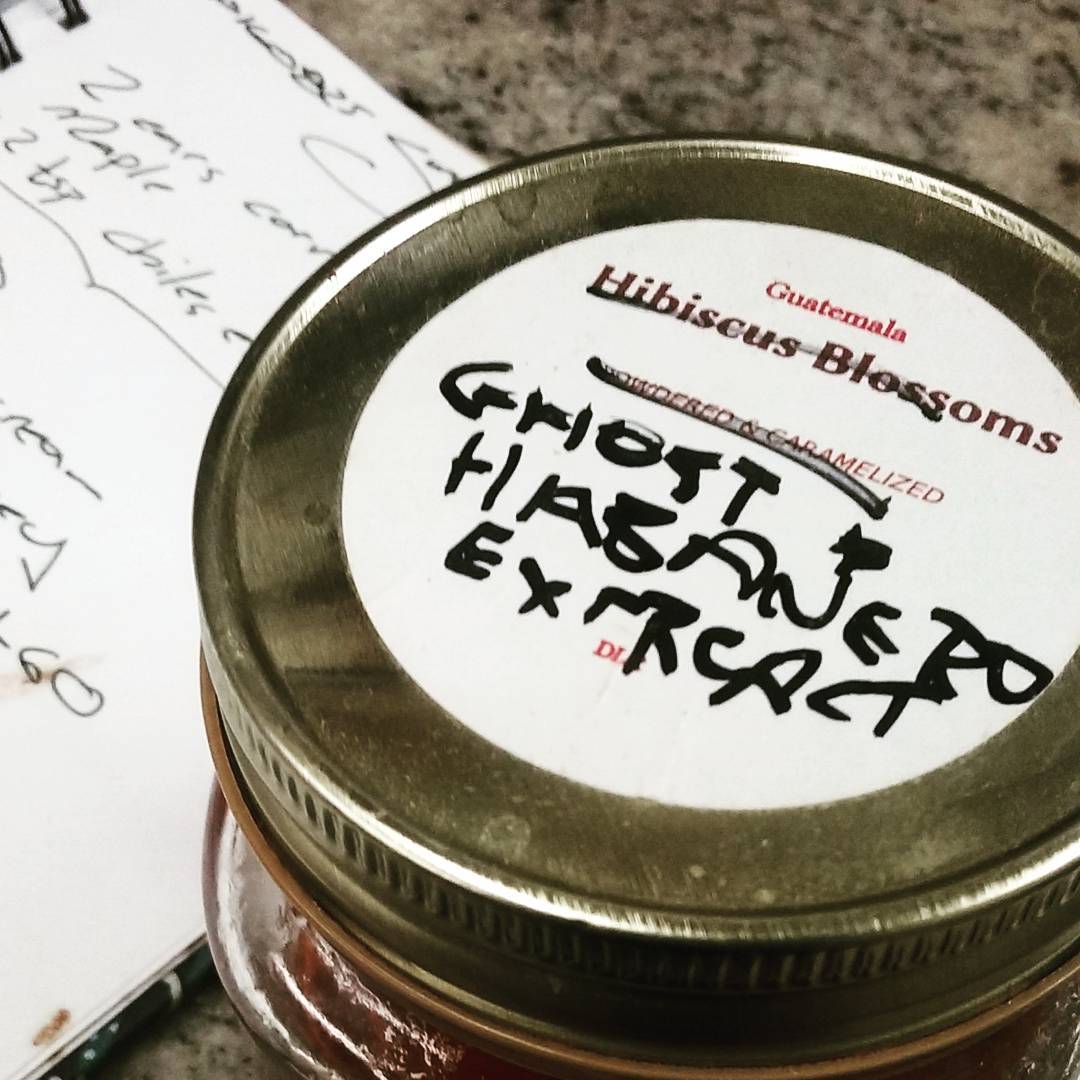 2 ears corn
Maple
2 tsp chiles
60
Guatemala
Hibiscus Blossoms
POWDERED & CARAMELIZED
GHOST +
HABANERO
EXTRACT